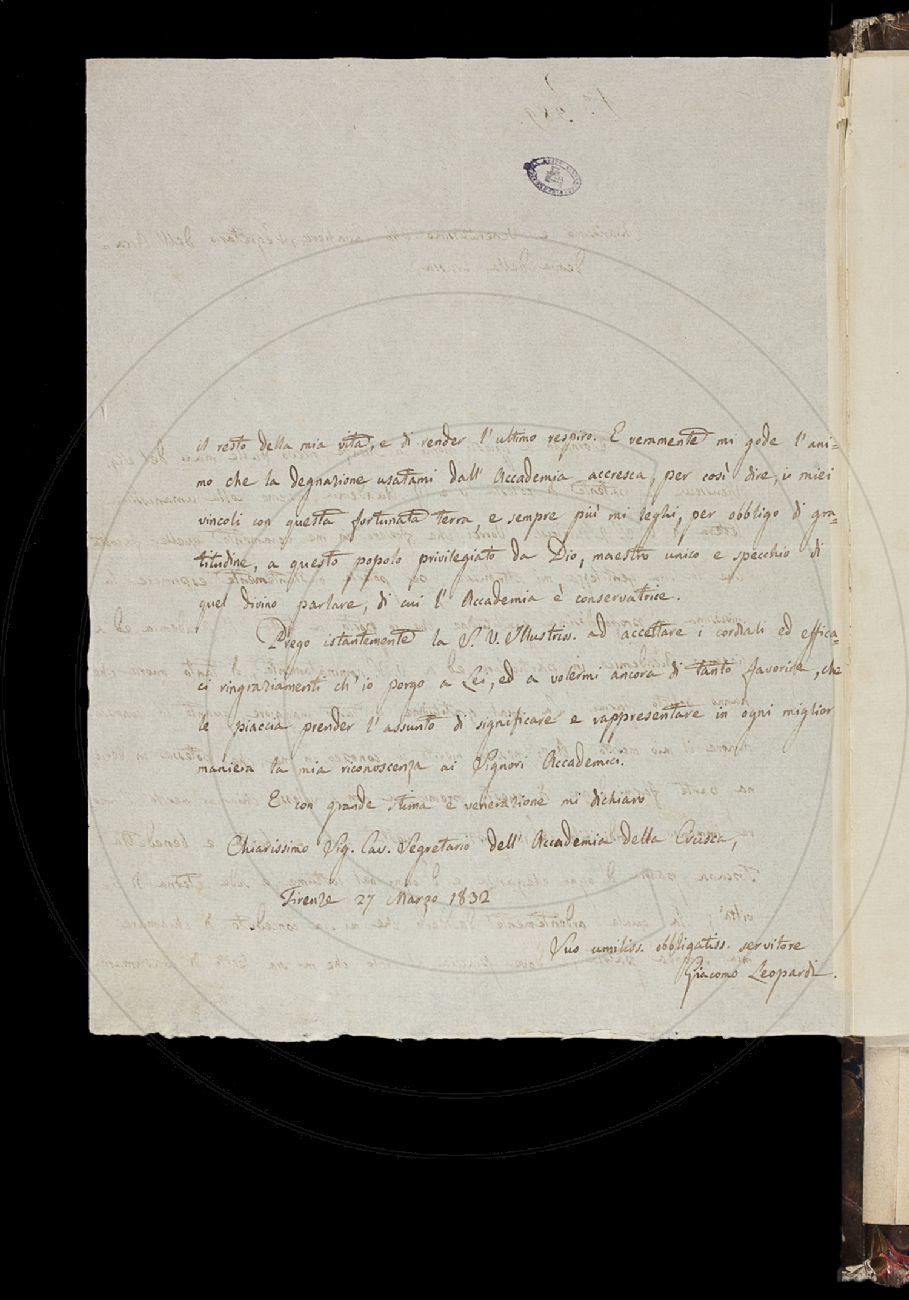 il resto della mia vita, e di render l'ultimo respiro. E veramente mi gode l'ani=
mo che la degnazione usatami dall'Accademia accresca, per così dire, i miei
vincoli con questa fortunata terra, e sempre più mi leghi, per obbligo di gra=
titudine, a questo popolo privilegiato da Dio, maestro unico e specchio di
quel divino parlare, di cui l'Accademia è conservatrice.
Prego istantemente la S. V. Illustriss. ad accettare i cordiali ed effica=
ci ringraziamenti ch'io porgo a Lei, ed a volermi ancora di tanto favorire, che
le piaccia prender l'assunto di significare e rappresentare in ogni miglior
maniera la mia riconoscenza ai Signori Accademici.
E con grande stima e venerazione mi dichiaro
Chiarissimo Sig. Cav. Segretario dell'Accademia della Crusca,
Firenze 27 Marzo 1832
Suo umiliss. obbligatiss. servitore
Giacomo Leopardi.